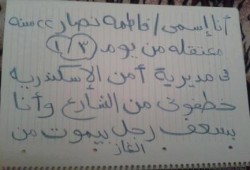 أنا إسمى / فاطمه نصار ٢٢ سنه
معتقله من يوم ٣/١
فى مديرية أمن الإسكندريه
خطفونى من الشارع وأنا
بسعف رجل بيموت من
الغاز